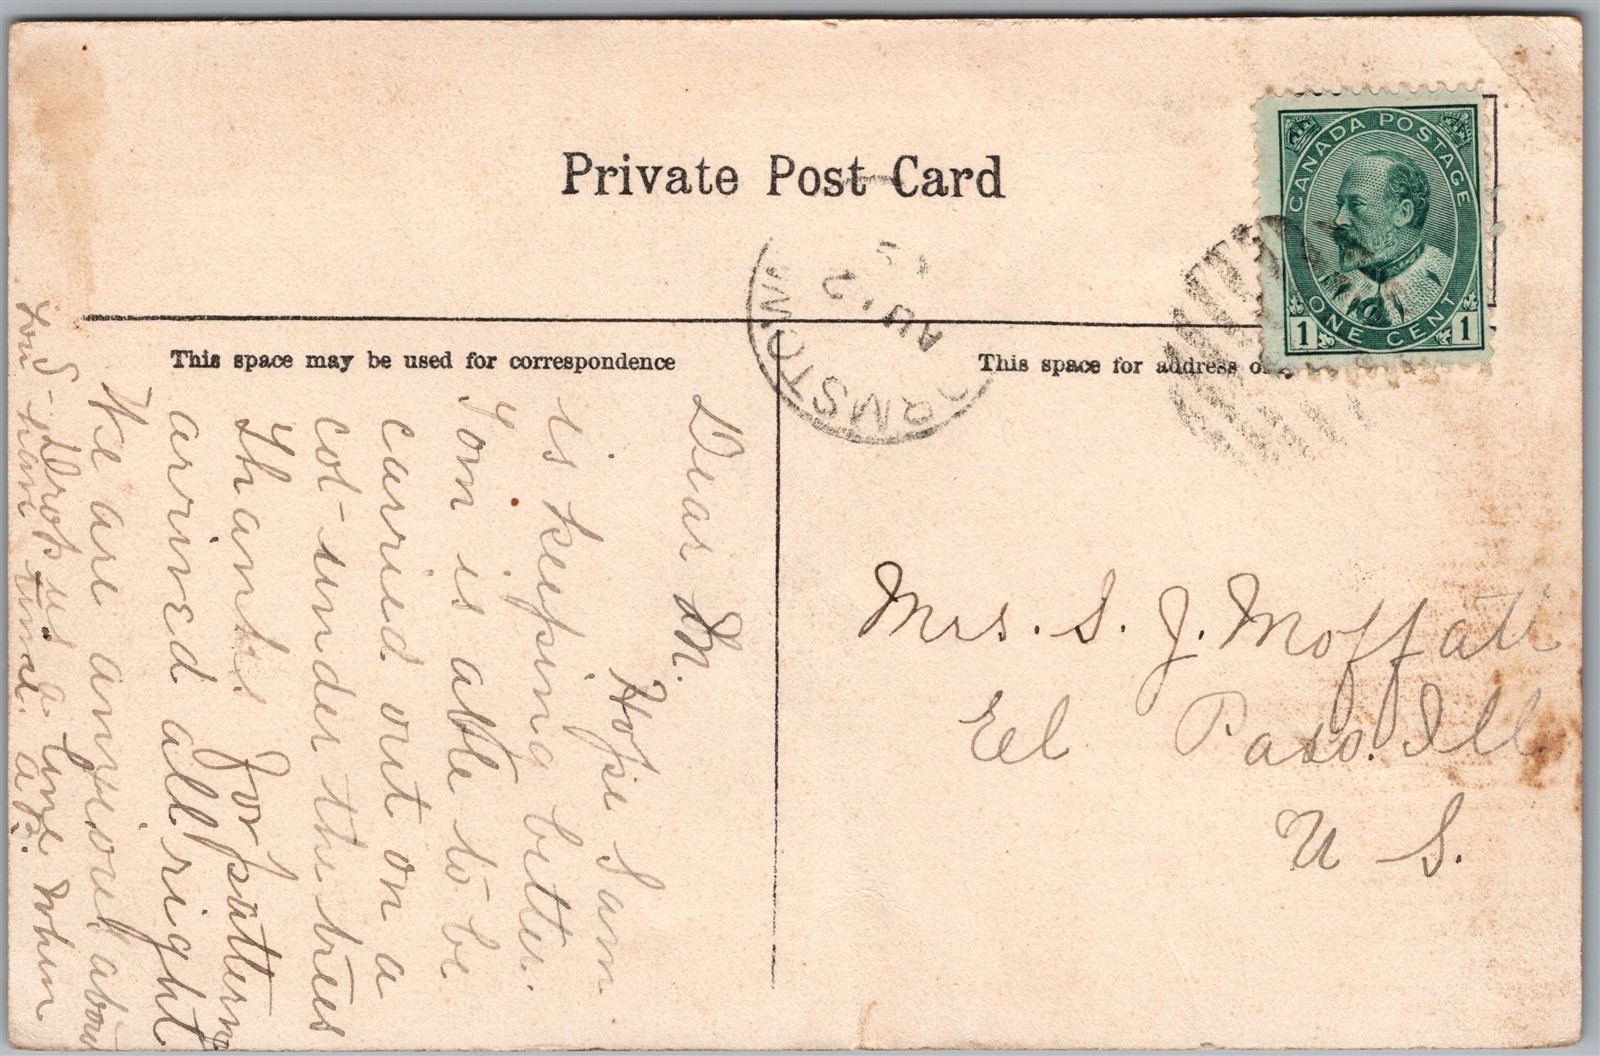 Private Post Card
CANADA POSTAGE
ONE CENT
1 1
AU 2
ORMSTOWN
This space may be used for correspondence
This space for address
Dear M.
Hope Sam
is keeping better.
Tom is able to be
carried out on a
cot-under the trees
Thanks for pattern
arrived all right
We are anxious about
you - Drop us a line when
time. A.B.
Mrs. S. J. Moffatt
El Paso. Ill
U S.